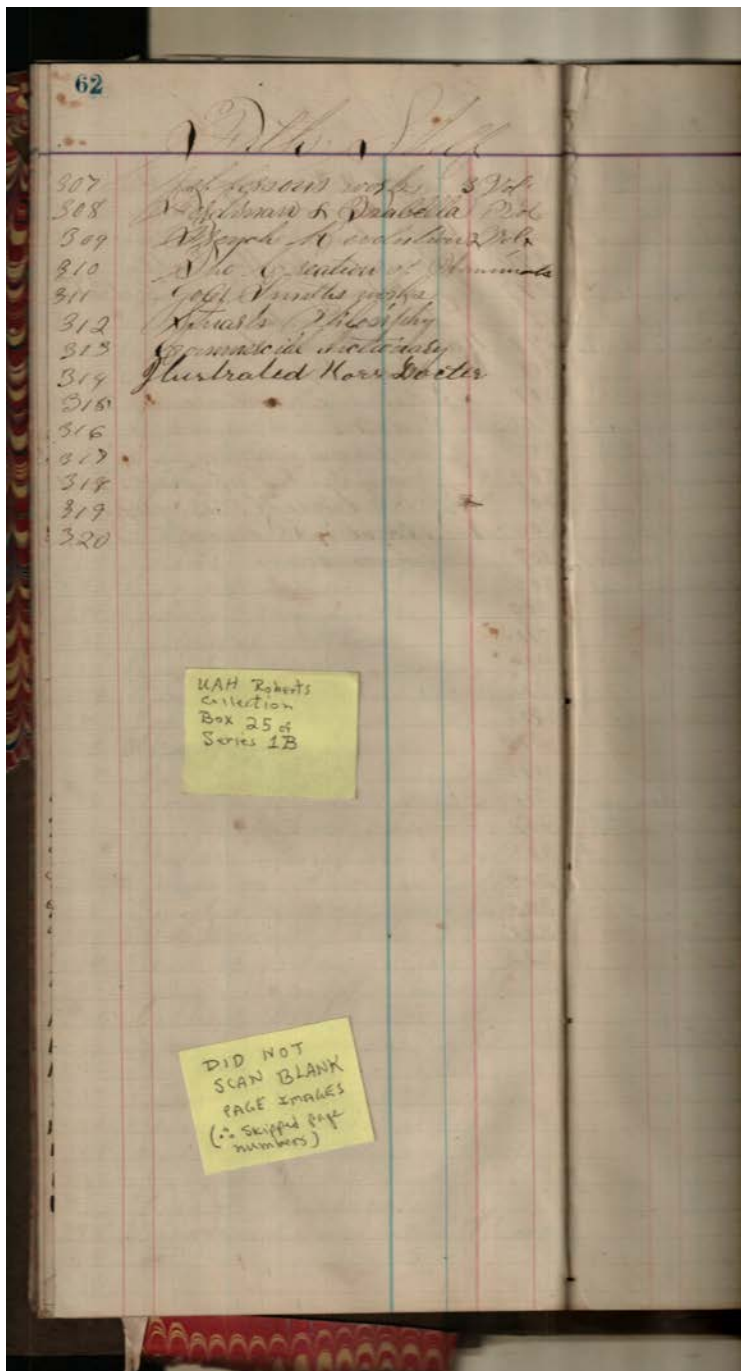 62
Fifth Shelf
307 Jeffersons works 3 Vol
308 Ferdinand & Isabella Vol
309 French Revolution 2 Vols
310 The Creation of
311 Gold Smiths works
312 Stuarts Philosophy
313 Commercial dictionary
314 Illustrated Hors Docter
315
316
317
318
319
320
UAH Roberts
Collection
Box 25 of
Series 1B
DID NOT
SCAN BLANK
PAGE IMAGES
(∴ Skipped page
numbers)